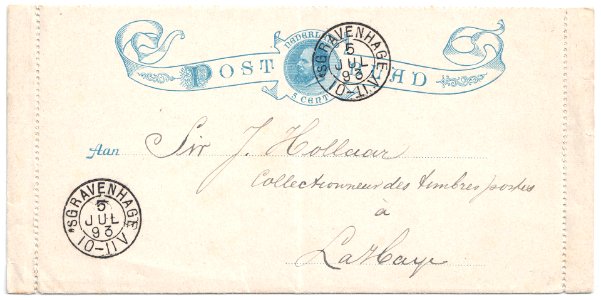 NEDERLAND
POSTBLAD
5 CENT
'SGRAVENHAGE
5
JUL
93
10-11V
Aan Sir J. Hollaar
Collectionneur des timbres/postes
à
La Haye
'SGRAVENHAGE
5
JUL
93
10-11V